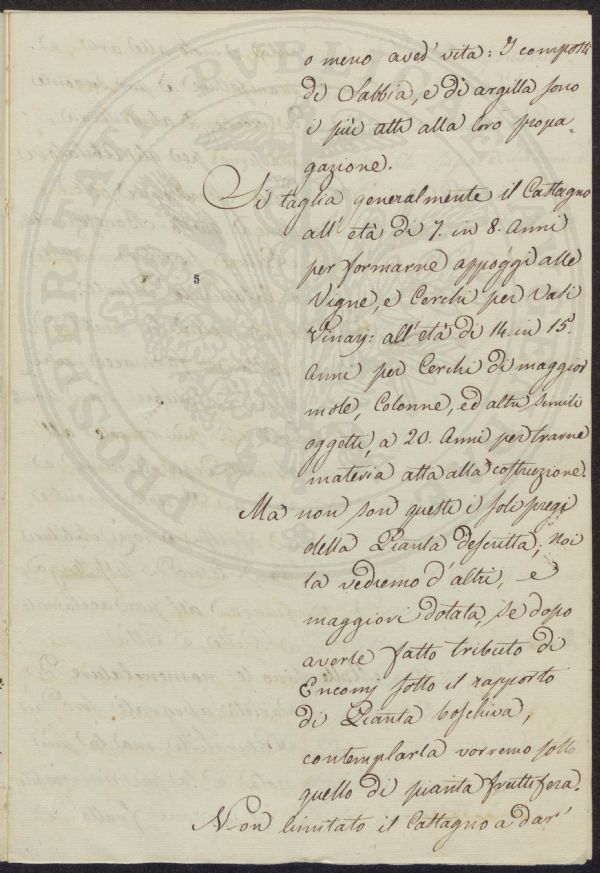 o meno aved' vita: I composti
di Sabbia, e di argilla sono
i più atti alla loro propa-
gazione.
Si taglia generalmente il Castagno
all' età di 7. in 8. Anni
per formarne appoggi alle
Vigne, e Cerchi per Vasi
Vinarj: all' età di 14. in 15.
Anni per Cerchi di maggior
mole, Colonne, ed altri simili
oggetti, a 20. Anni per trarne
materia atta alla costruzione.
Ma non son questi i soli pregi
della Pianta descritta; Noi
la vedremo d'altri, e
maggiori dotata, se dopo
averle fatto tributo di
Encomj sotto il rapporto
di Pianta boschiva,
contemplarla vorremo sotto
quello di pianta fruttifera.
Non limitato il Castagno a dar'
5
PROSPERITATI PVBLICAE